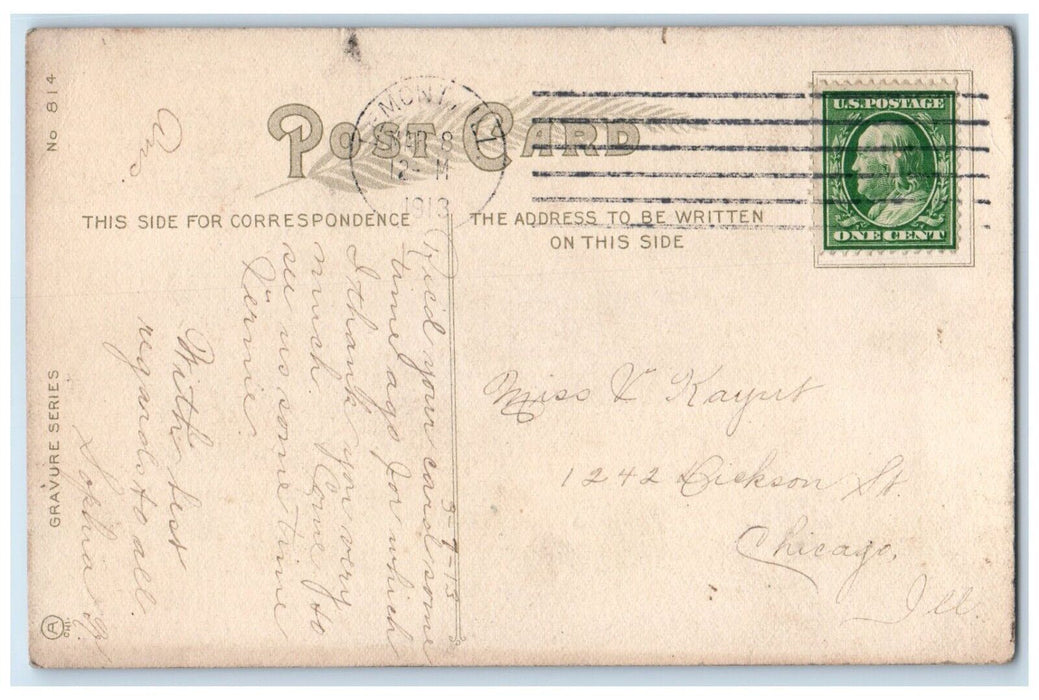 No 814
POST CARD
MONT,
8
12- M
1913
U.S. POSTAGE
ONE CENT
THIS SIDE FOR CORRESPONDENCE
THE ADDRESS TO BE WRITTEN
ON THIS SIDE
Ans
3-7-13
Rec'd your card some
time ago for which
I thank you very
much. Come to
see us some time
With best
regards to all
Sophia
Miss V Kayut
1242 Dickson St.
Chicago,
Ill.
GRAVURE SERIES
A
CHI-